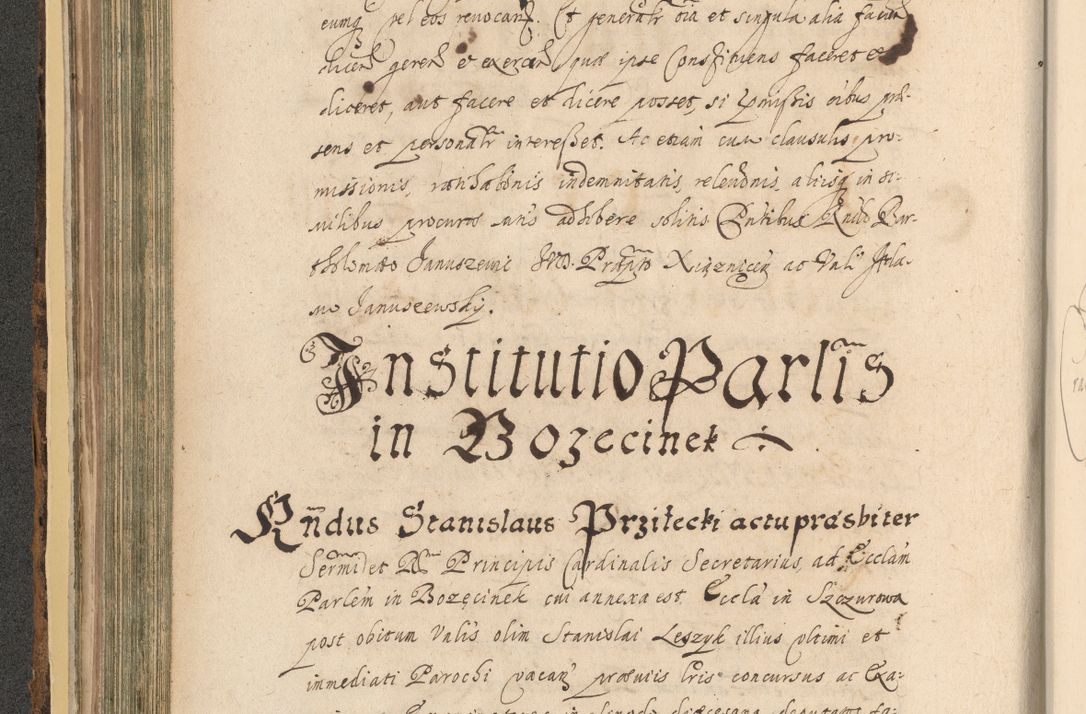 eumq pel eos revocand. Et generalr oia et singula alia facien
dicen geren et exercen quæ ipse Constituens faceret et
diceret, aut facere et dicere posset, si præmissis oibus præ-
sens et personalr interesset. Ac etiam cum clausulis pro-
missionis, ratihabonis indemnitatis, relevonis, aliisq in si-
milibus procuros mris adhibere solitis Pntibus Rndo Bar-
tholomæo Januszewic JVD. Præpto Xiąznicen ac Vali
Januszewskj.
Institutio Parlis
in Bozecinek
Rndus Stanislaus Przilecki actu præsbiter
Sermi et Rmi Principis Cardinalis Secretarius, ad Ecclam
Parlem in Bozęcinek cui annexa est Eccla in Szczurowa
post obitum Valis olim Stanislai Leszyk illius ultimi et
immediati Parochi vacan prævijs Lris concursus ac Exa-